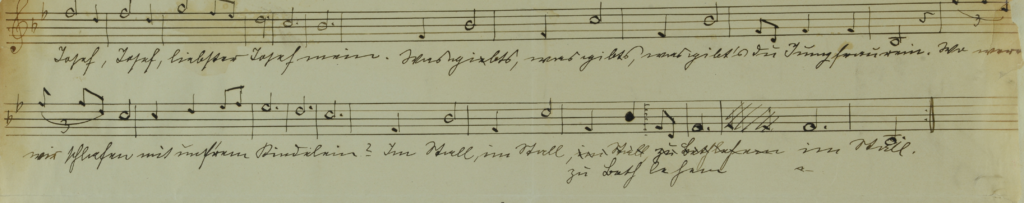 Josef, Josef, liebster Josef mein. Was giebts, was gibts, was gibt's du Jungfrau rein. Wo werd
wir schlafen mit unsrem Kindelein? Im Stall, im Stall, im Stall zu Bethlehem im Stall.
zu Beth lehem